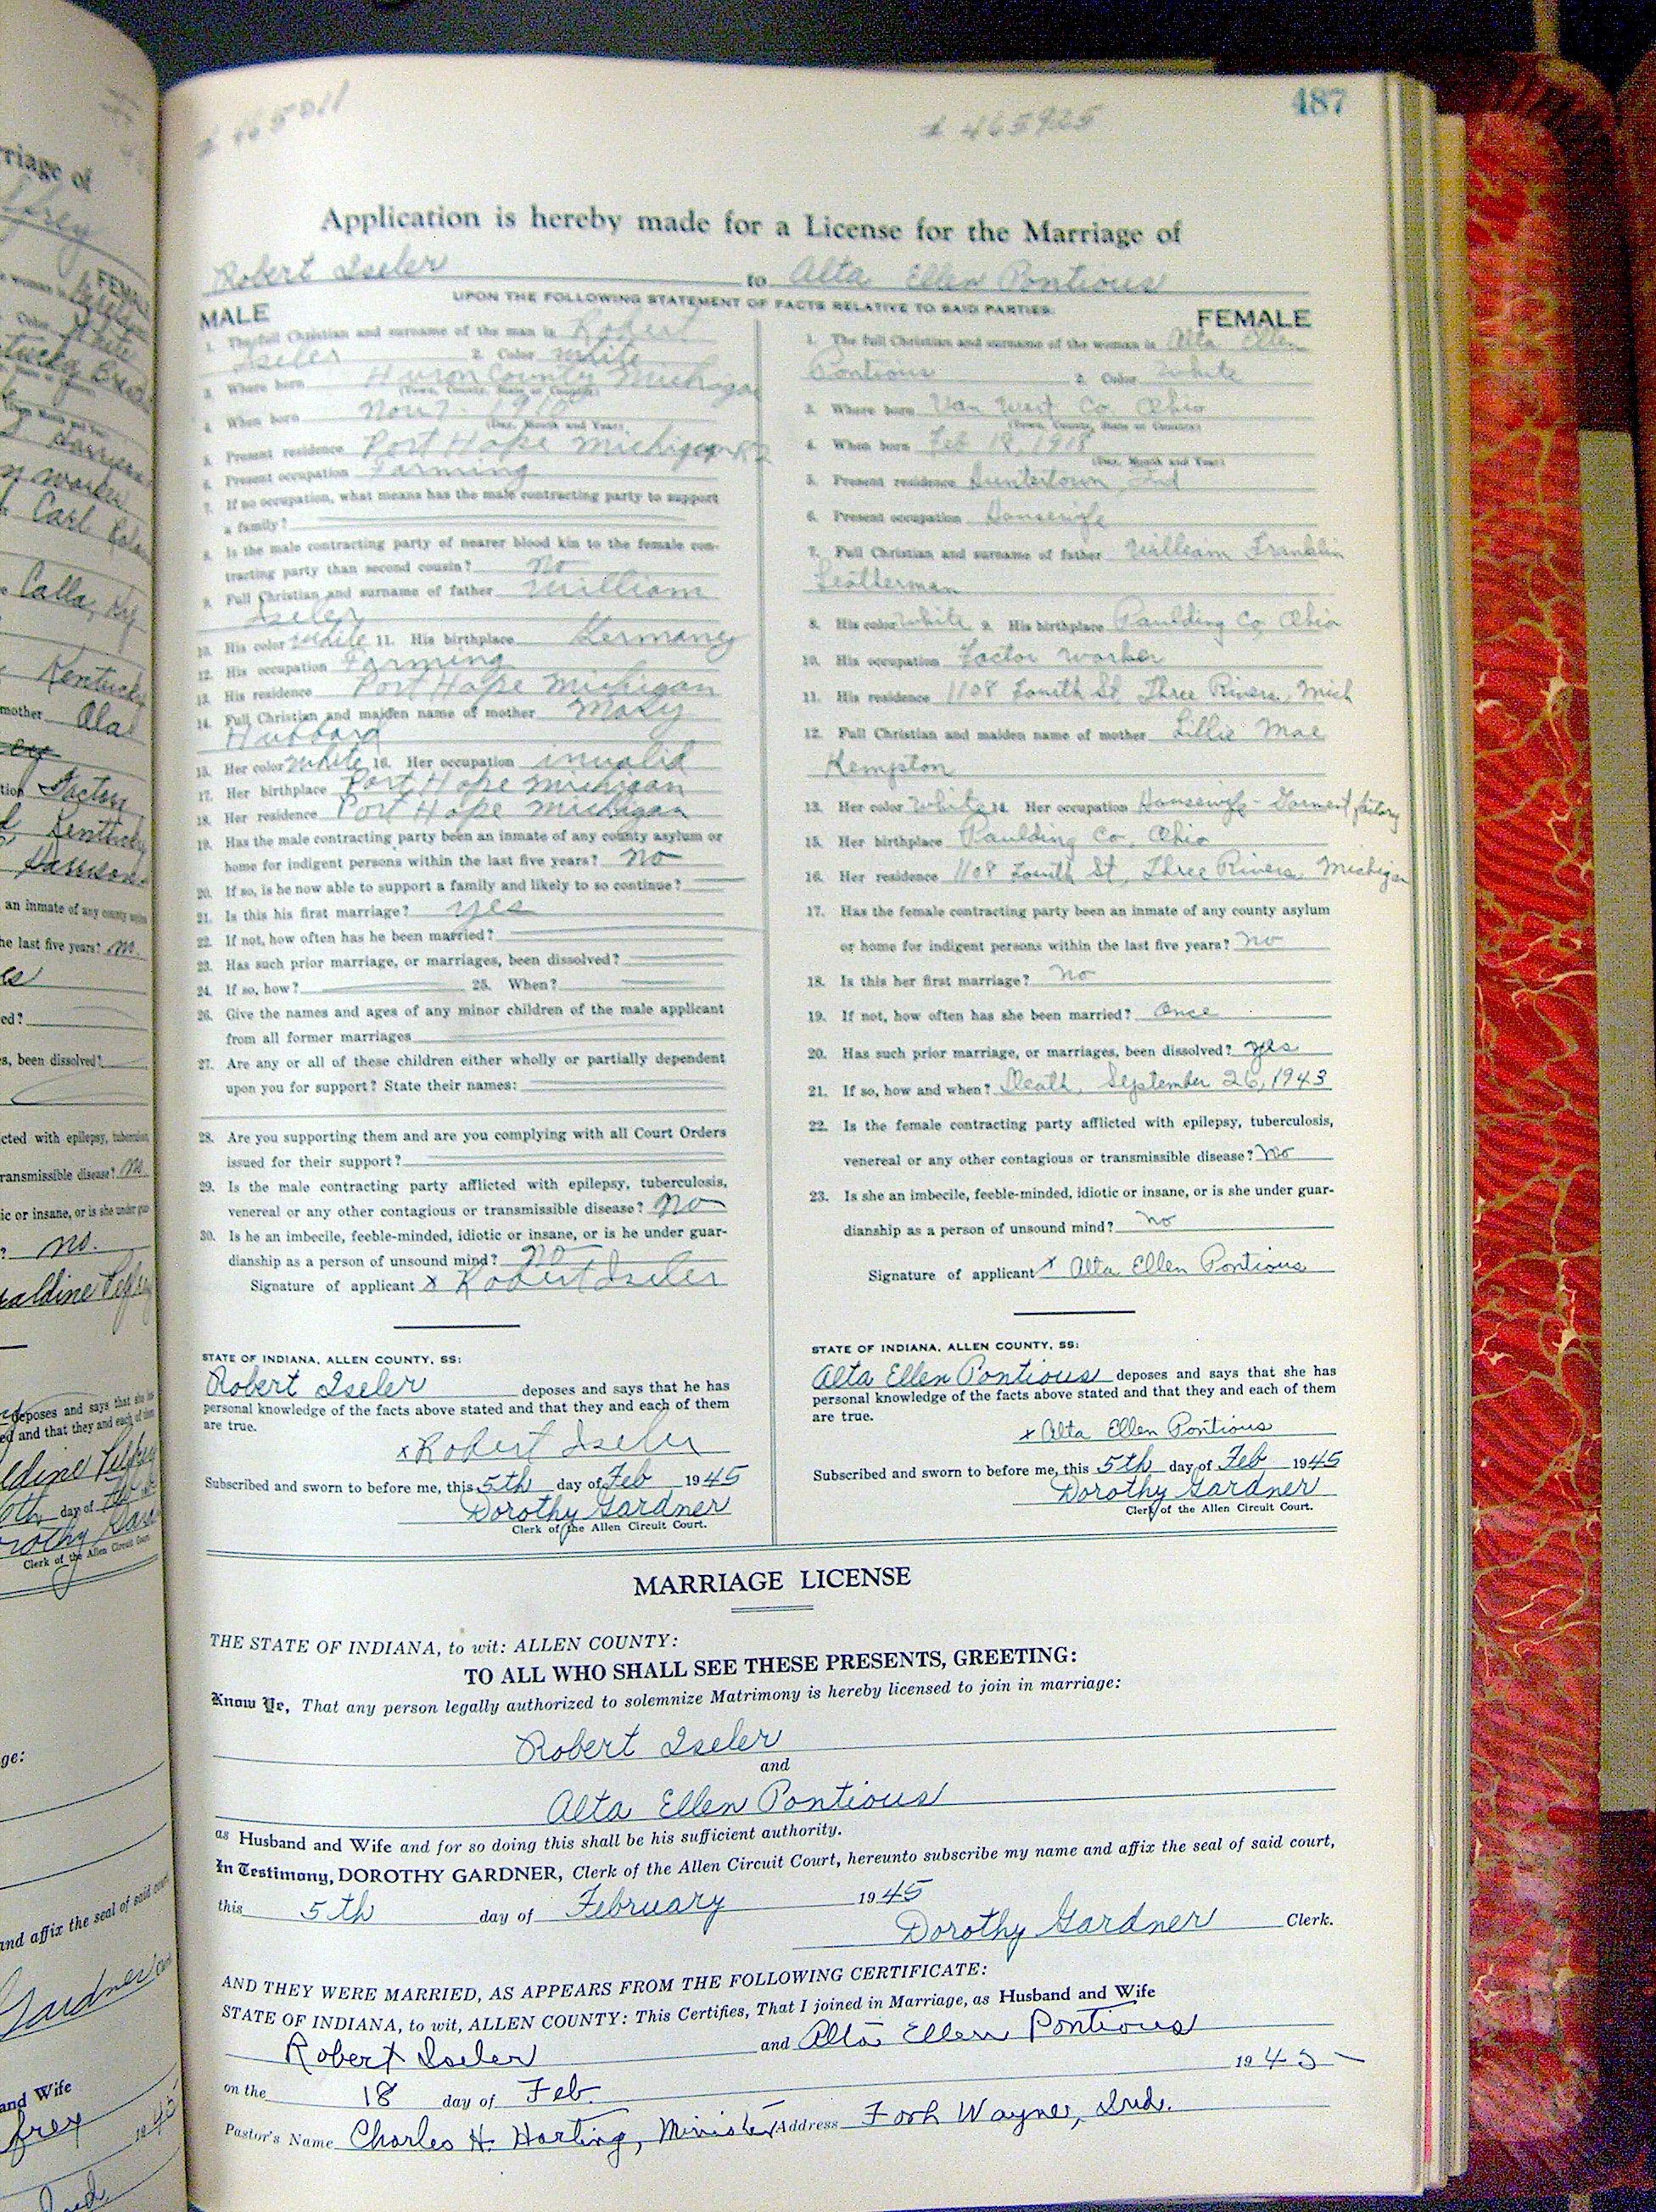 487
465925
Application is hereby made for a License for the Marriage of
Robert Iseler to Alta Ellen Pontious
UPON THE FOLLOWING STATEMENT OF FACTS RELATIVE TO SAID PARTIES:
MALE
1. The full Christian and surname of the man is Robert
Iseler 2. Color White
3. Where born Huron County Michigan
(Town, County, State or Country)
4. When born Nov 7 - 1910
(Day, Month and Year)
5. Present residence Port Hope Michigan R2
6. Present occupation Farming
7. If no occupation, what means has the male contracting party to support
a family?
8. Is the male contracting party of nearer blood kin to the female con-
tracting party than second cousin? no
9. Full Christian and surname of father William
Iseler
10. His color White 11. His birthplace Germany
12. His occupation Farming
13. His residence Port Hope Michigan
14. Full Christian and maiden name of mother Mary
Hubbard
15. Her color White 16. Her occupation invalid
17. Her birthplace Port Hope Michigan
18. Her residence Port Hope Michigan
19. Has the male contracting party been an inmate of any county asylum or
home for indigent persons within the last five years? no
20. If so, is he now able to support a family and likely to so continue?
21. Is this his first marriage? yes
22. If not, how often has he been married?
23. Has such prior marriage, or marriages, been dissolved?
24. If so, how? 25. When?
26. Give the names and ages of any minor children of the male applicant
from all former marriages
27. Are any or all of these children either wholly or partially dependent
upon you for support? State their names:
28. Are you supporting them and are you complying with all Court Orders
issued for their support?
29. Is the male contracting party afflicted with epilepsy, tuberculosis,
venereal or any other contagious or transmissible disease? no
30. Is he an imbecile, feeble-minded, idiotic or insane, or is he under guar-
dianship as a person of unsound mind? no
Signature of applicant x Robert Iseler
STATE OF INDIANA, ALLEN COUNTY, SS:
Robert Iseler deposes and says that he has
personal knowledge of the facts above stated and that they and each of them
are true.
x Robert Iseler
Subscribed and sworn to before me, this 5th day of Feb 1945
Dorothy Gardner
Clerk of the Allen Circuit Court.
FEMALE
1. The full Christian and surname of the woman is Alta Ellen
Pontious 2. Color White
3. Where born Van Wert Co. Ohio
(Town, County, State or Country)
4. When born Feb 18, 1918
(Day, Month and Year)
5. Present residence Huntertown, Ind
6. Present occupation Housewife
7. Full Christian and surname of father William Franklin
Leatherman
8. His color White 9. His birthplace Paulding Co, Ohio
10. His occupation Factor worker
11. His residence 1108 Fourth St, Three Rivers, Mich
12. Full Christian and maiden name of mother Lillie Mae
Kempton
13. Her color White 14. Her occupation Housewife - Garment factory
15. Her birthplace Paulding Co, Ohio
16. Her residence 1108 Fourth St, Three Rivers, Michigan
17. Has the female contracting party been an inmate of any county asylum
or home for indigent persons within the last five years? no
18. Is this her first marriage? no
19. If not, how often has she been married? Once
20. Has such prior marriage, or marriages, been dissolved? yes
21. If so, how and when? Death, September 26, 1943
22. Is the female contracting party afflicted with epilepsy, tuberculosis,
venereal or any other contagious or transmissible disease? no
23. Is she an imbecile, feeble-minded, idiotic or insane, or is she under guar-
dianship as a person of unsound mind? no
Signature of applicant x Alta Ellen Pontious
STATE OF INDIANA, ALLEN COUNTY, SS:
Alta Ellen Pontious deposes and says that she has
personal knowledge of the facts above stated and that they and each of them
are true.
x Alta Ellen Pontious
Subscribed and sworn to before me, this 5th day of Feb 1945
Dorothy Gardner
Clerk of the Allen Circuit Court.
MARRIAGE LICENSE
THE STATE OF INDIANA, to wit: ALLEN COUNTY:
TO ALL WHO SHALL SEE THESE PRESENTS, GREETING:
Know Ye, That any person legally authorized to solemnize Matrimony is hereby licensed to join in marriage:
Robert Iseler
and
Alta Ellen Pontious
as Husband and Wife and for so doing this shall be his sufficient authority.
In Testimony, DOROTHY GARDNER, Clerk of the Allen Circuit Court, hereunto subscribe my name and affix the seal of said court,
this 5th day of February 1945
Dorothy Gardner Clerk.
AND THEY WERE MARRIED, AS APPEARS FROM THE FOLLOWING CERTIFICATE:
STATE OF INDIANA, to wit, ALLEN COUNTY: This Certifies, That I joined in Marriage, as Husband and Wife
Robert Iseler and Alta Ellen Pontious
on the 18 day of Feb. 1945
Pastor's Name Charles H. Harting, Minister Address Fort Wayne, Ind.